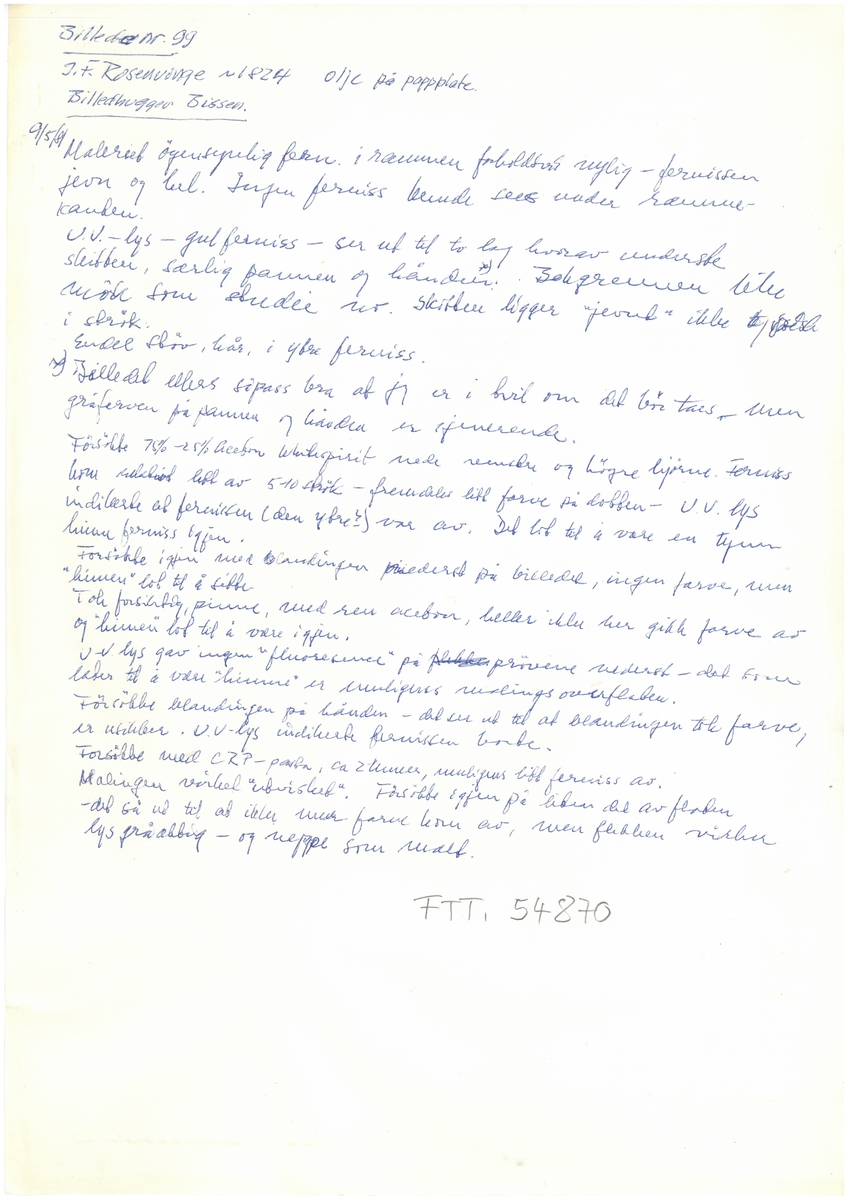 Billede nr. 99
J.F. Rosenvinge ~1824 olje på pappplate.
Billedhugger Bissen.
9/5/81
Maleriet öyensynelig fern. i rammen forholdsvis nylig – fernissen
jevn og hel. Ingen ferniss kunde sees under ramme-
kanten.
U.V. – lys – gul ferniss – ser ut til to lag hvorav underste
skitten, særlig pannen og händer *). Bakgrunnen like
mörk som studie no. Skitten ligger "jevnt" ikke
i strök.
Endel stöv, hår, i ytre ferniss.
*) Billedet ellers såpass bra at jeg er i tvil om det bör taes – men
gråferven på pannen og händen er sjenerende.
Försökte 75% – 25% Aceton Whitespirit nede venstre og högre hjörne. Ferniss
kom litt av 5-10 strök – fremdeles litt farve på dotten – U.V. lys
indikerte at fernissen (den ytre?) var av. Det lot til å være en tynn
hinne ferniss igjen.
Forsökte igjen med blandingen nederst på billedet, ingen farve, men
"hinnen" lot til å sitte
Tok forsiktig, pinne, med ren aceton, heller ikke her gikk farve av
og "hinnen" lot til å være igjen.
U.V. lys gav ingen "fluoresence" på prövene nederst – det som
later til å være "hinne" er muligens malings overflaten.
Försökte blandingen på hånden – det ser ut til at blandingen tok farve,
er usikker. U.V-lys indikerte fernissen borte.
Forsökte med CRP-pasta, ca 2 timer, muligens litt ferniss av.
Malingen virket "utvisket". Försökte igjen på liten del av flaten
– det så ut til at ikke mer farve kom av, men flekken virker
lys gråaktig – og neppe som malt.
FTT. 54870